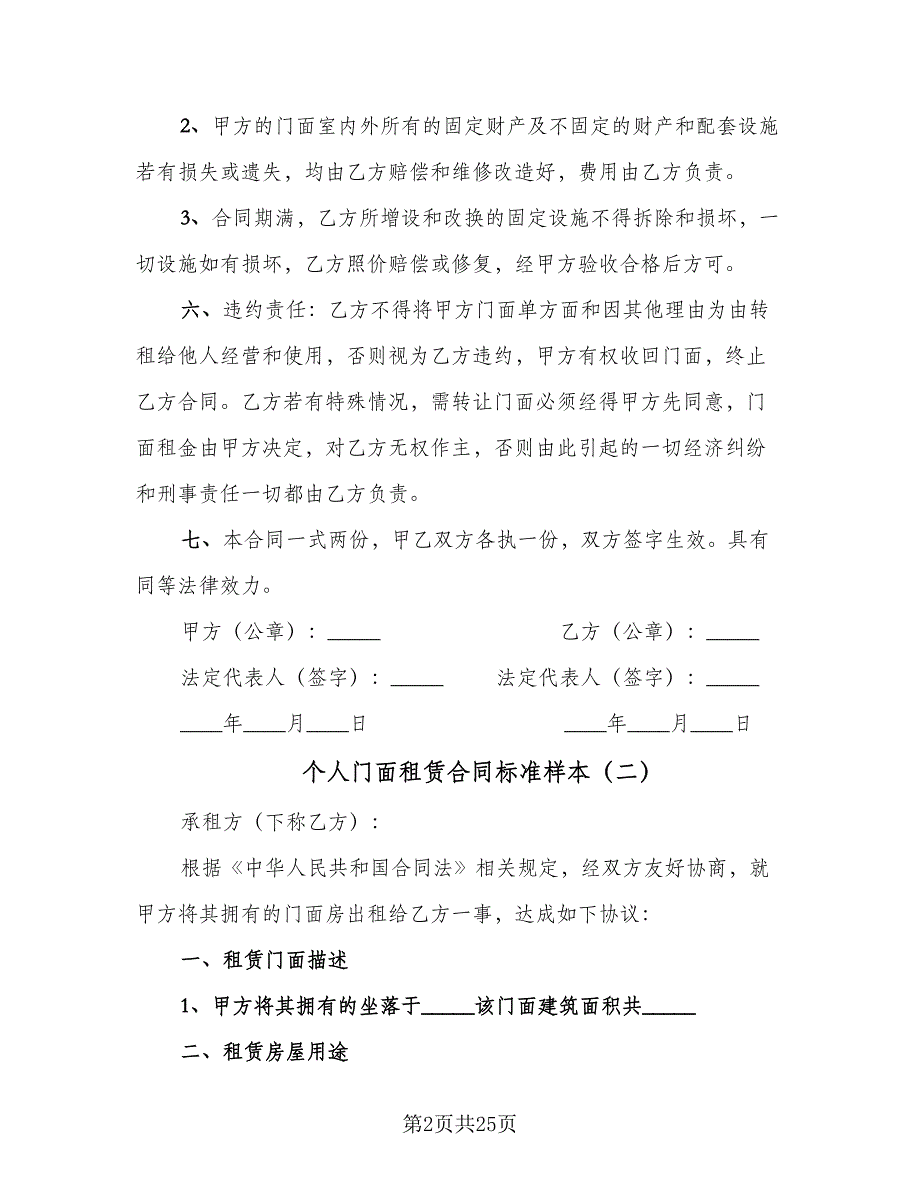 2、甲方的门面室内外所有的固定财产及不固定的财产和配套设施
若有损失或遗失，均由乙方赔偿和维修改造好，费用由乙方负责。
3、合同期满，乙方所增设和改换的固定设施不得拆除和损坏，一
切设施如有损坏，乙方照价赔偿或修复，经甲方验收合格后方可。
六、违约责任：乙方不得将甲方门面单方面和因其他理由为由转
租给他人经营和使用，否则视为乙方违约，甲方有权收回门面，终止
乙方合同。乙方若有特殊情况，需转让门面必须经得甲方先同意，门
面租金由甲方决定，对乙方无权作主，否则由此引起的一切经济纠纷
和刑事责任一切都由乙方负责。
七、本合同一式两份，甲乙双方各执一份，双方签字生效。具有
同等法律效力。
甲方（公章）：_____ 乙方（公章）：_____
法定代表人（签字）：_____ 法定代表人（签字）：_____
____年____月____日 ____年____月____日
个人门面租赁合同标准样本（二）
承租方（下称乙方）：
根据《中华人民共和国合同法》相关规定，经双方友好协商，就
甲方将其拥有的门面房出租给乙方一事，达成如下协议：
一、租赁门面描述
1、甲方将其拥有的坐落于_____该门面建筑面积共_____
二、租赁房屋用途
第2页共25页